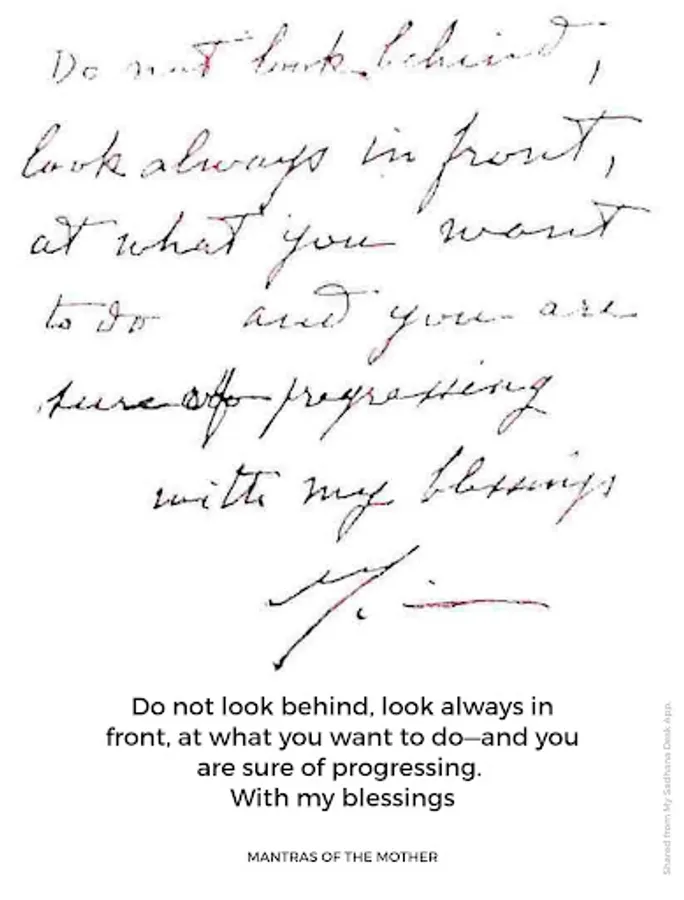 Do not look behind,
look always in front,
at what you want
to do and you are
sure of progressing
with my blessings
Do not look behind, look always in
front, at what you want to do—and you
are sure of progressing.
With my blessings
MANTRAS OF THE MOTHER
Shared from My Sadhana Desk App.